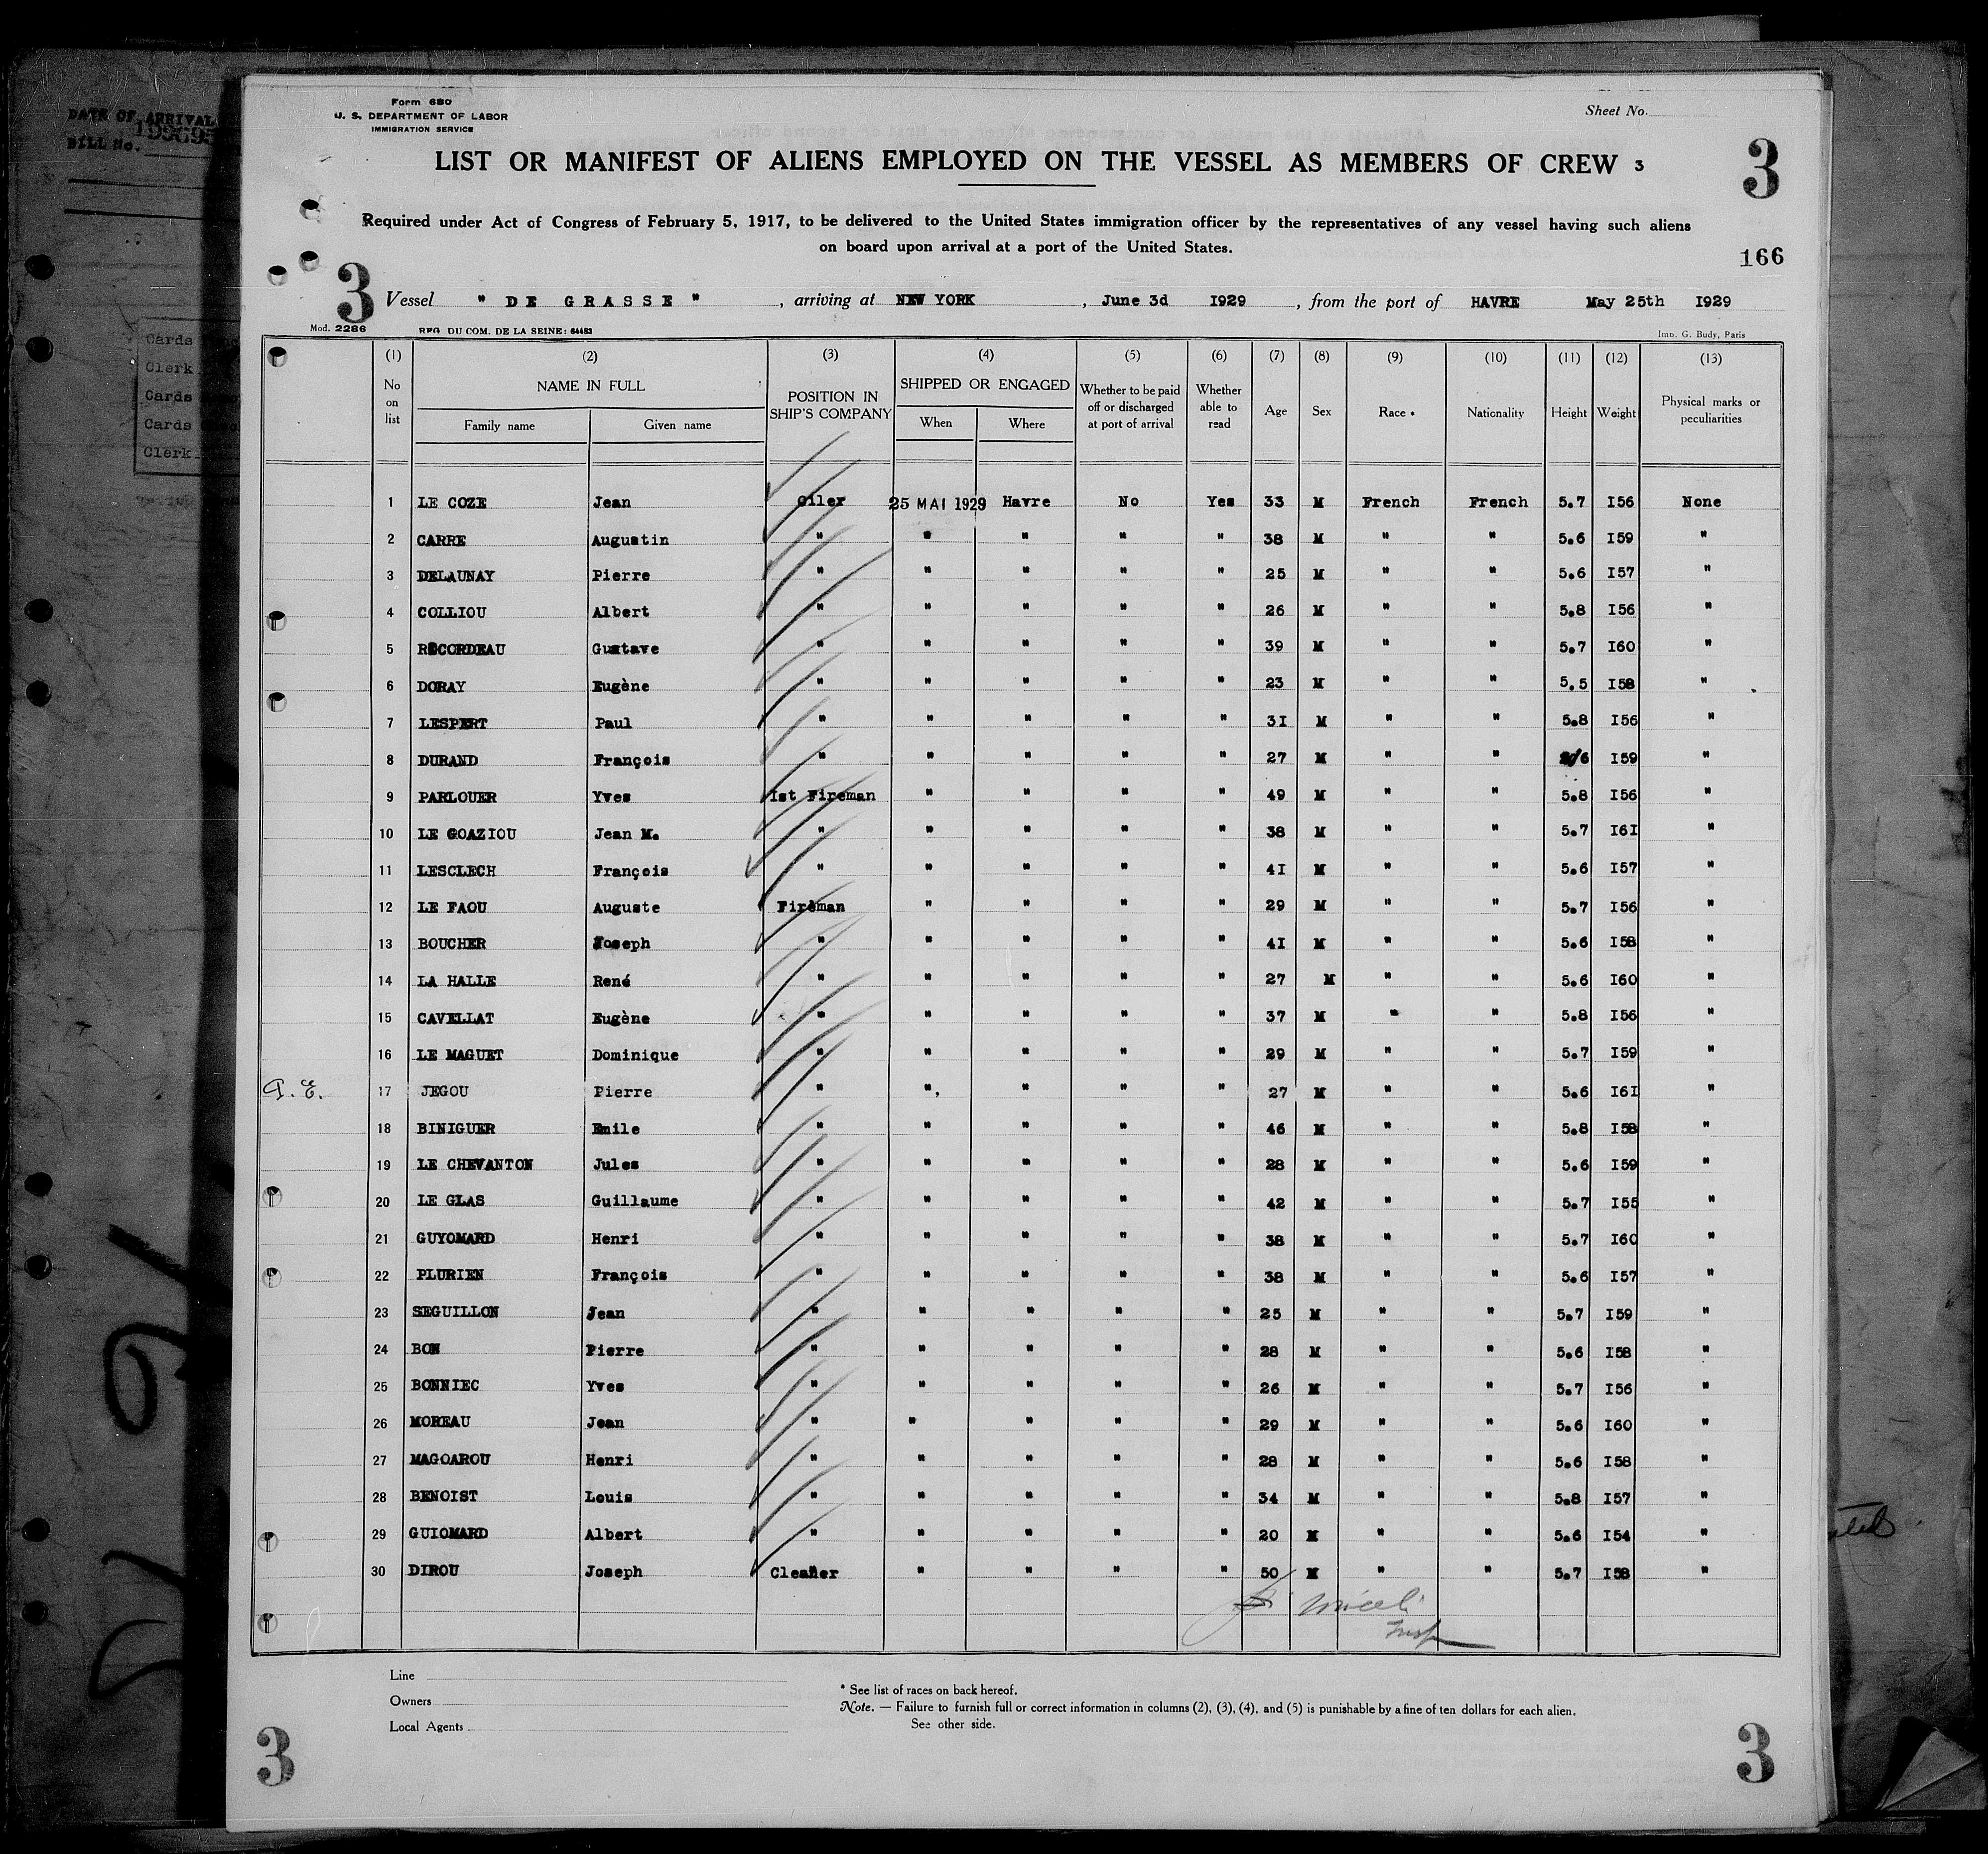 DATE OF ARRIVAL
BILL No.
Cards
Clerk
Cards
Cards
Clerk
Form 680
U. S. DEPARTMENT OF LABOR
IMMIGRATION SERVICE
Sheet No.
LIST OR MANIFEST OF ALIENS EMPLOYED ON THE VESSEL AS MEMBERS OF CREW 3
3
Required under Act of Congress of February 5, 1917, to be delivered to the United States immigration officer by the representatives of any vessel having such aliens
on board upon arrival at a port of the United States.
166
3
Vessel " DE GRASSE " , arriving at NEW YORK , June 3d I929 , from the port of HAVRE May 25th I929
Mod. 2286 REG. DU COM. DE LA SEINE: 64483 Imp. G. Budy, Paris
(1) (2) (3) (4) (5) (6) (7) (8) (9) (10) (11) (12) (13)
No on list NAME IN FULL Family name Given name POSITION IN SHIP'S COMPANY SHIPPED OR ENGAGED When Where Whether to be paid off or discharged at port of arrival Whether able to read Age Sex Race * Nationality Height Weight Physical marks or peculiarities
1 LE COZE Jean Oiler 25 MAI 1929 Havre No Yes 33 M French French 5.7 I56 None
2 CARRE Augustin " " " " " 38 M " " 5.6 I59 "
3 DELAUNAY Pierre " " " " " 25 M " " 5.6 I57 "
4 COLLIOU Albert " " " " " 26 M " " 5.8 I56 "
5 RECORDEAU Gustave " " " " " 39 M " " 5.7 I60 "
6 DORAY Eugène " " " " " 23 M " " 5.5 I58 "
7 LESPERT Paul " " " " " 3I M " " 5.8 I56 "
8 DURAND François " " " " " 27 M " " 6 I59 "
9 PARLOUER Yves Ist Fireman " " " " 49 M " " 5.8 I56 "
10 LE GOAZIOU Jean M. " " " " " 38 M " " 5.7 I6I "
11 LESCLECH François " " " " " 4I M " " 5.6 I57 "
12 LE FAOU Auguste Fireman " " " " 29 M " " 5.7 I56 "
13 BOUCHER Joseph " " " " " 4I M " " 5.6 I58 "
14 LA HALLE René " " " " " 27 M " " 5.6 I60 "
15 CAVELLAT Eugène " " " " " 37 M " " 5.8 I56 "
16 LE MAGUET Dominique " " " " " 29 M " " 5.7 I59 "
17 JEGOU Pierre " " " " " 27 M " " 5.6 I6I "
18 BINIGUER Emile " " " " " 46 M " " 5.8 I58 "
19 LE CHEVANTON Jules " " " " " 28 M " " 5.6 I59 "
20 LE GLAS Guillaume " " " " " 42 M " " 5.7 I55 "
21 GUYOMARD Henri " " " " " 38 M " " 5.7 I60 "
22 PLURIEN François " " " " " 38 M " " 5.6 I57 "
23 SEGUILLON Jean " " " " " 25 M " " 5.7 I59 "
24 BON Pierre " " " " " 28 M " " 5.6 I58 "
25 BONNIEC Yves " " " " " 26 M " " 5.7 I56 "
26 MOREAU Jean " " " " " 29 M " " 5.6 I60 "
27 MAGOAROU Henri " " " " " 28 M " " 5.6 I58 "
28 BENOIST Louis " " " " " 34 M " " 5.8 I57 "
29 GUIOMARD Albert " " " " " 20 M " " 5.6 I54 "
30 DIROU Joseph Cleaner " " " " 50 M " " 5.7 I58 "
Line
Owners
Local Agents
* See list of races on back hereof.
Note. — Failure to furnish full or correct information in columns (2), (3), (4), and (5) is punishable by a fine of ten dollars for each alien.
See other side.
3
3